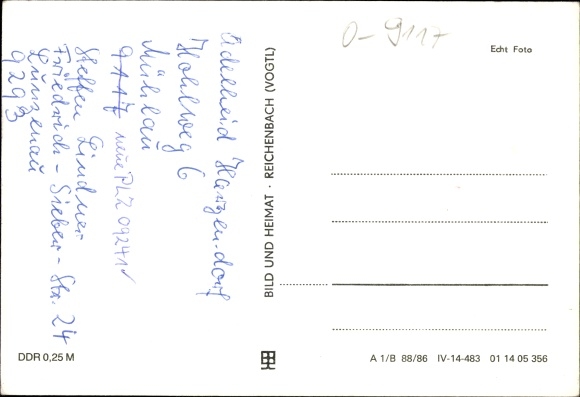 Adelheid Harzendorf
Hohlweg 6
Mühlau
9117 neue PLZ 09241
Steffen Lindner
Friedrich-Sieber-Str. 24
Lunzenau
9293
BILD UND HEIMAT · REICHENBACH (VOGTL)
O-9117
Echt Foto
DDR 0,25 M
A 1/B 88/86 IV-14-483 01 14 05 356